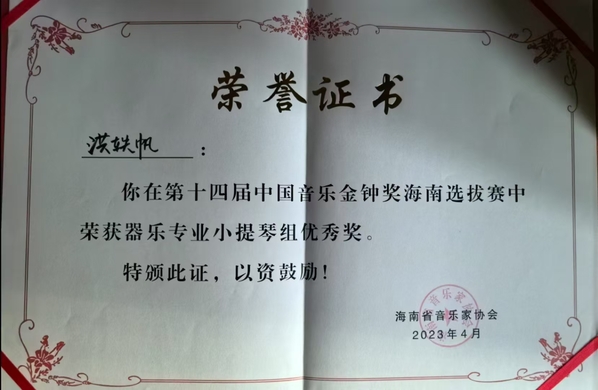 荣誉证书
洪轶帆：
你在第十四届中国音乐金钟奖海南选拔赛中
荣获器乐专业小提琴组优秀奖。
特颁此证，以资鼓励！
海南省音乐家协会
2023年4月